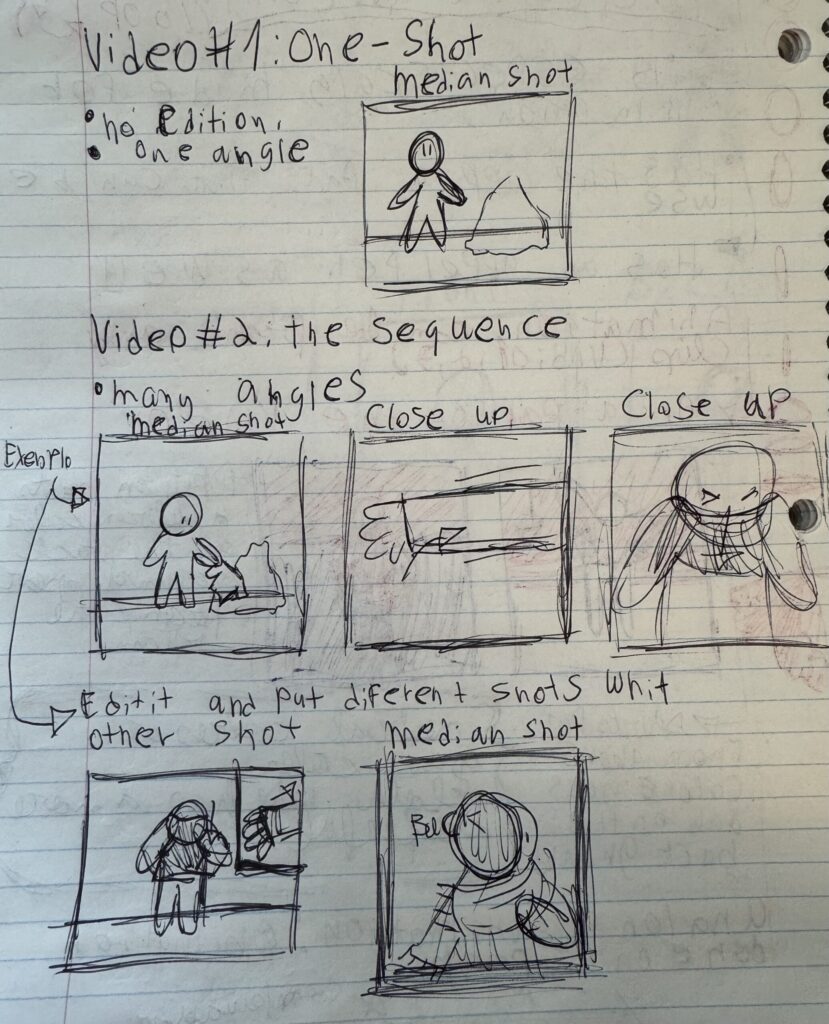 Video#1: One-Shot
median shot
• no Edition,
• one angle
Video#2: the sequence
• many angles
median shot
Close up
Close up
Exemplo
Editit and put diferent shots whit
other shot
median shot